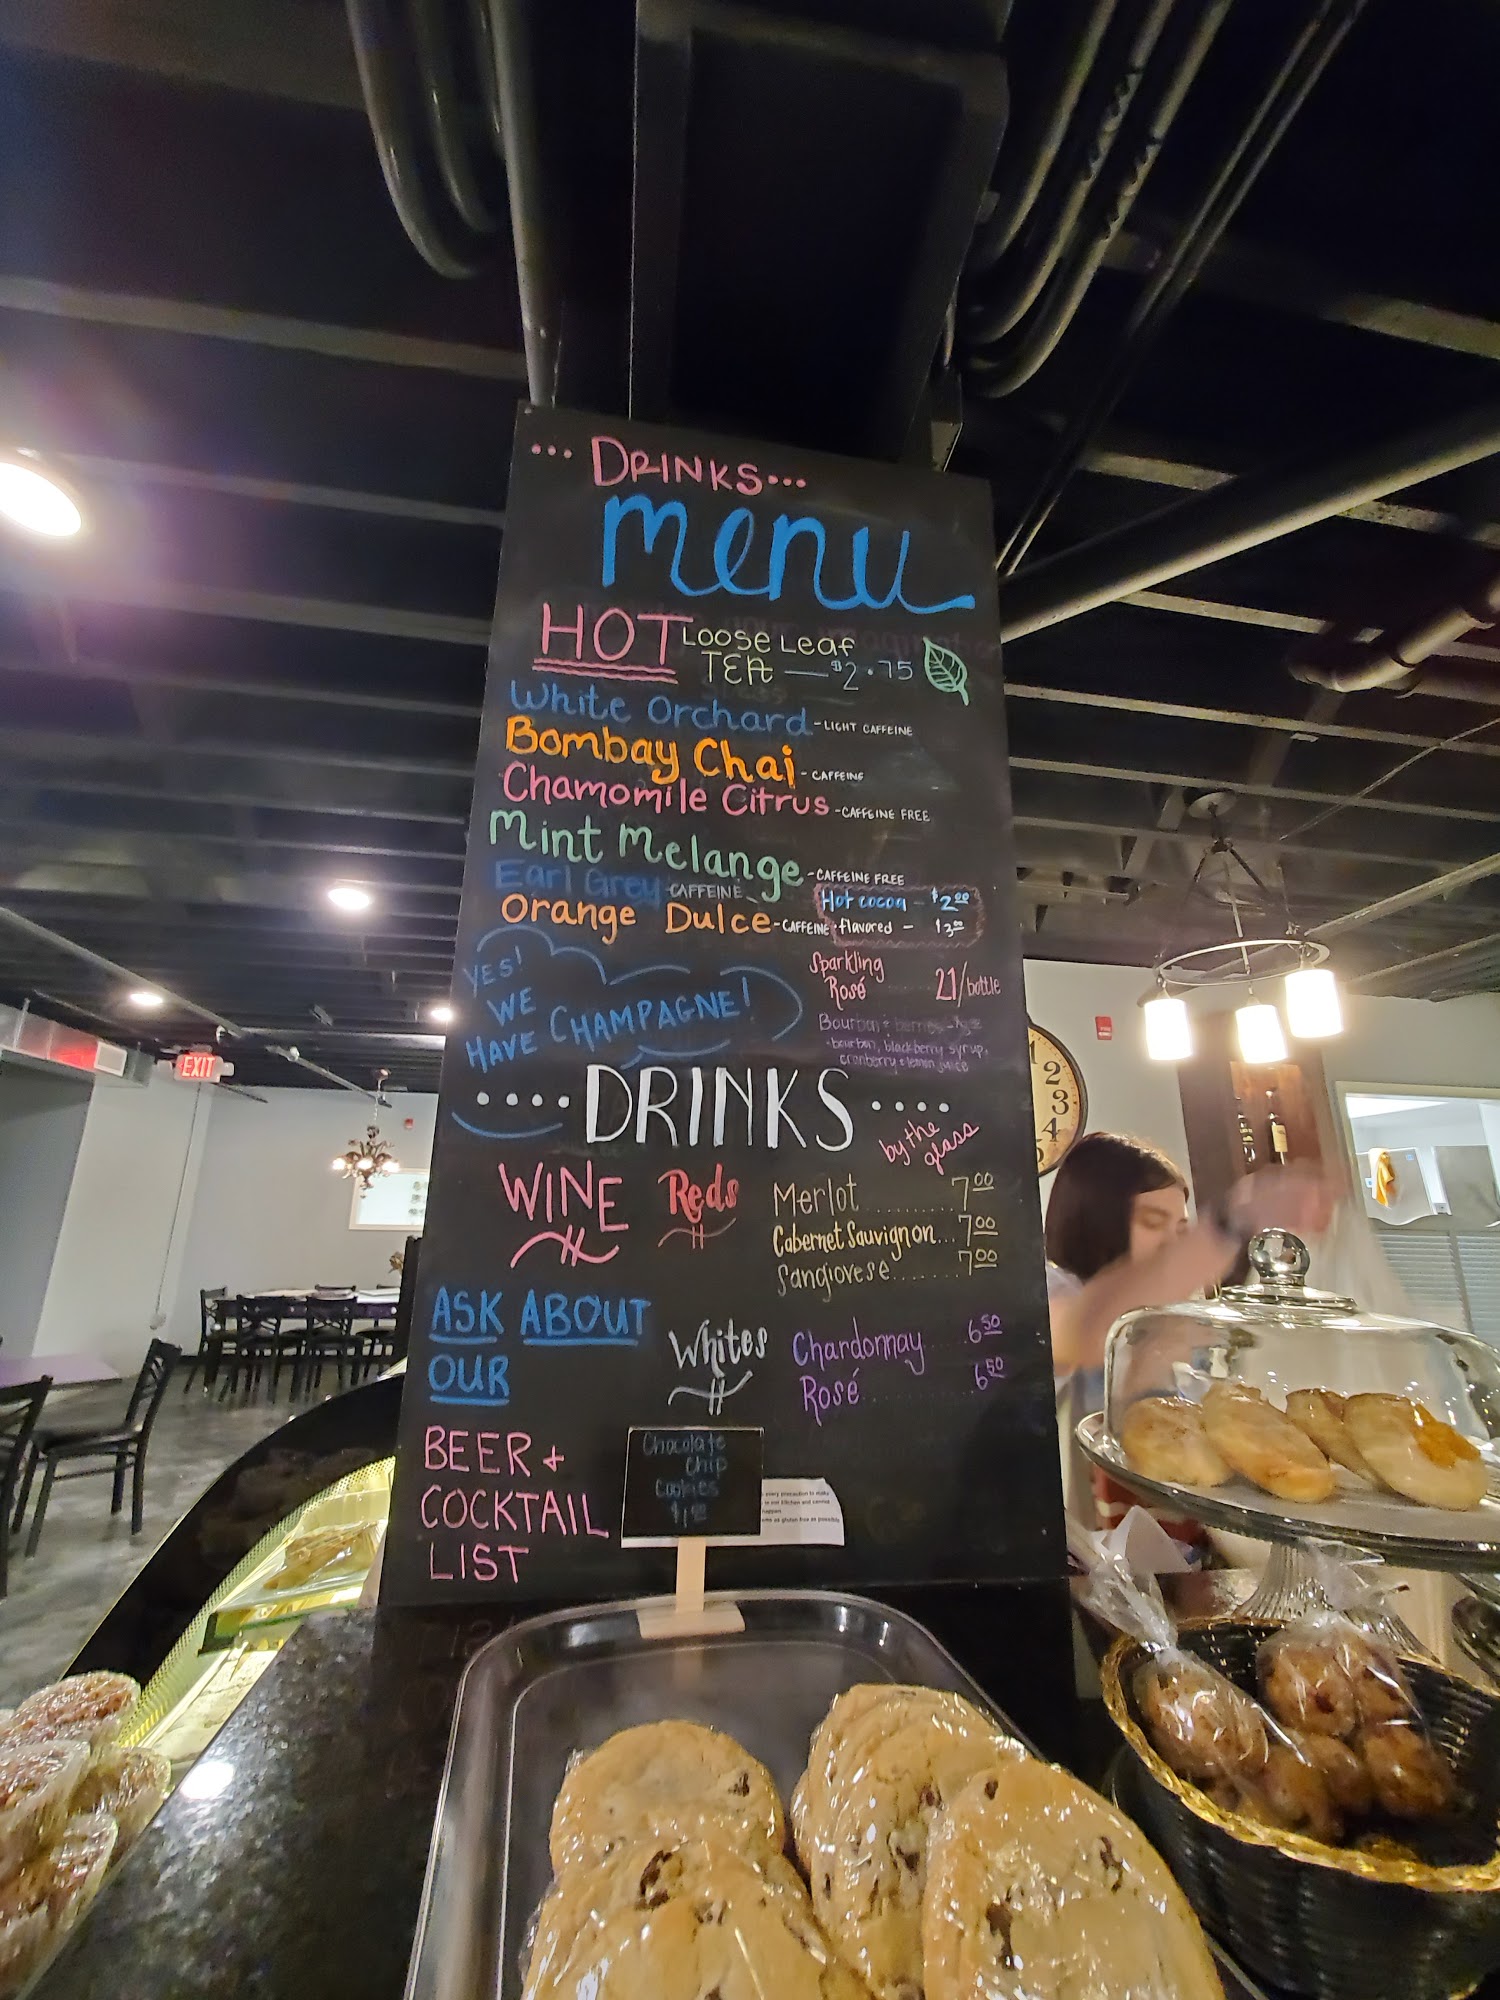 ... DRINKS...
menu
HOT Loose Leaf
TEA — $2.75
White Orchard - LIGHT CAFFEINE
Bombay Chai - CAFFEINE
Chamomile Citrus - CAFFEINE FREE
Mint Melange - CAFFEINE FREE
Earl Grey - CAFFEINE
Orange Dulce - CAFFEINE
Hot cocoa - $2.00
flavored - $3.00
YES!
WE
HAVE CHAMPAGNE!
Sparkling
Rosé 21/bottle
Bourbon + berries
- bourbon, blackberry syrup,
cranberry + lemon juice
.... DRINKS ....
by the
glass
WINE Reds
Merlot ......... 7.00
Cabernet Sauvignon... 7.00
Sangiovese........ 7.00
Whites
Chardonnay .. 6.50
Rosé .......... 6.50
ASK ABOUT
OUR
BEER +
COCKTAIL
LIST
Chocolate
Chip
Cookies
every precaution to make
happen.
as gluten free as possible
EXIT
1
2
3
4
5